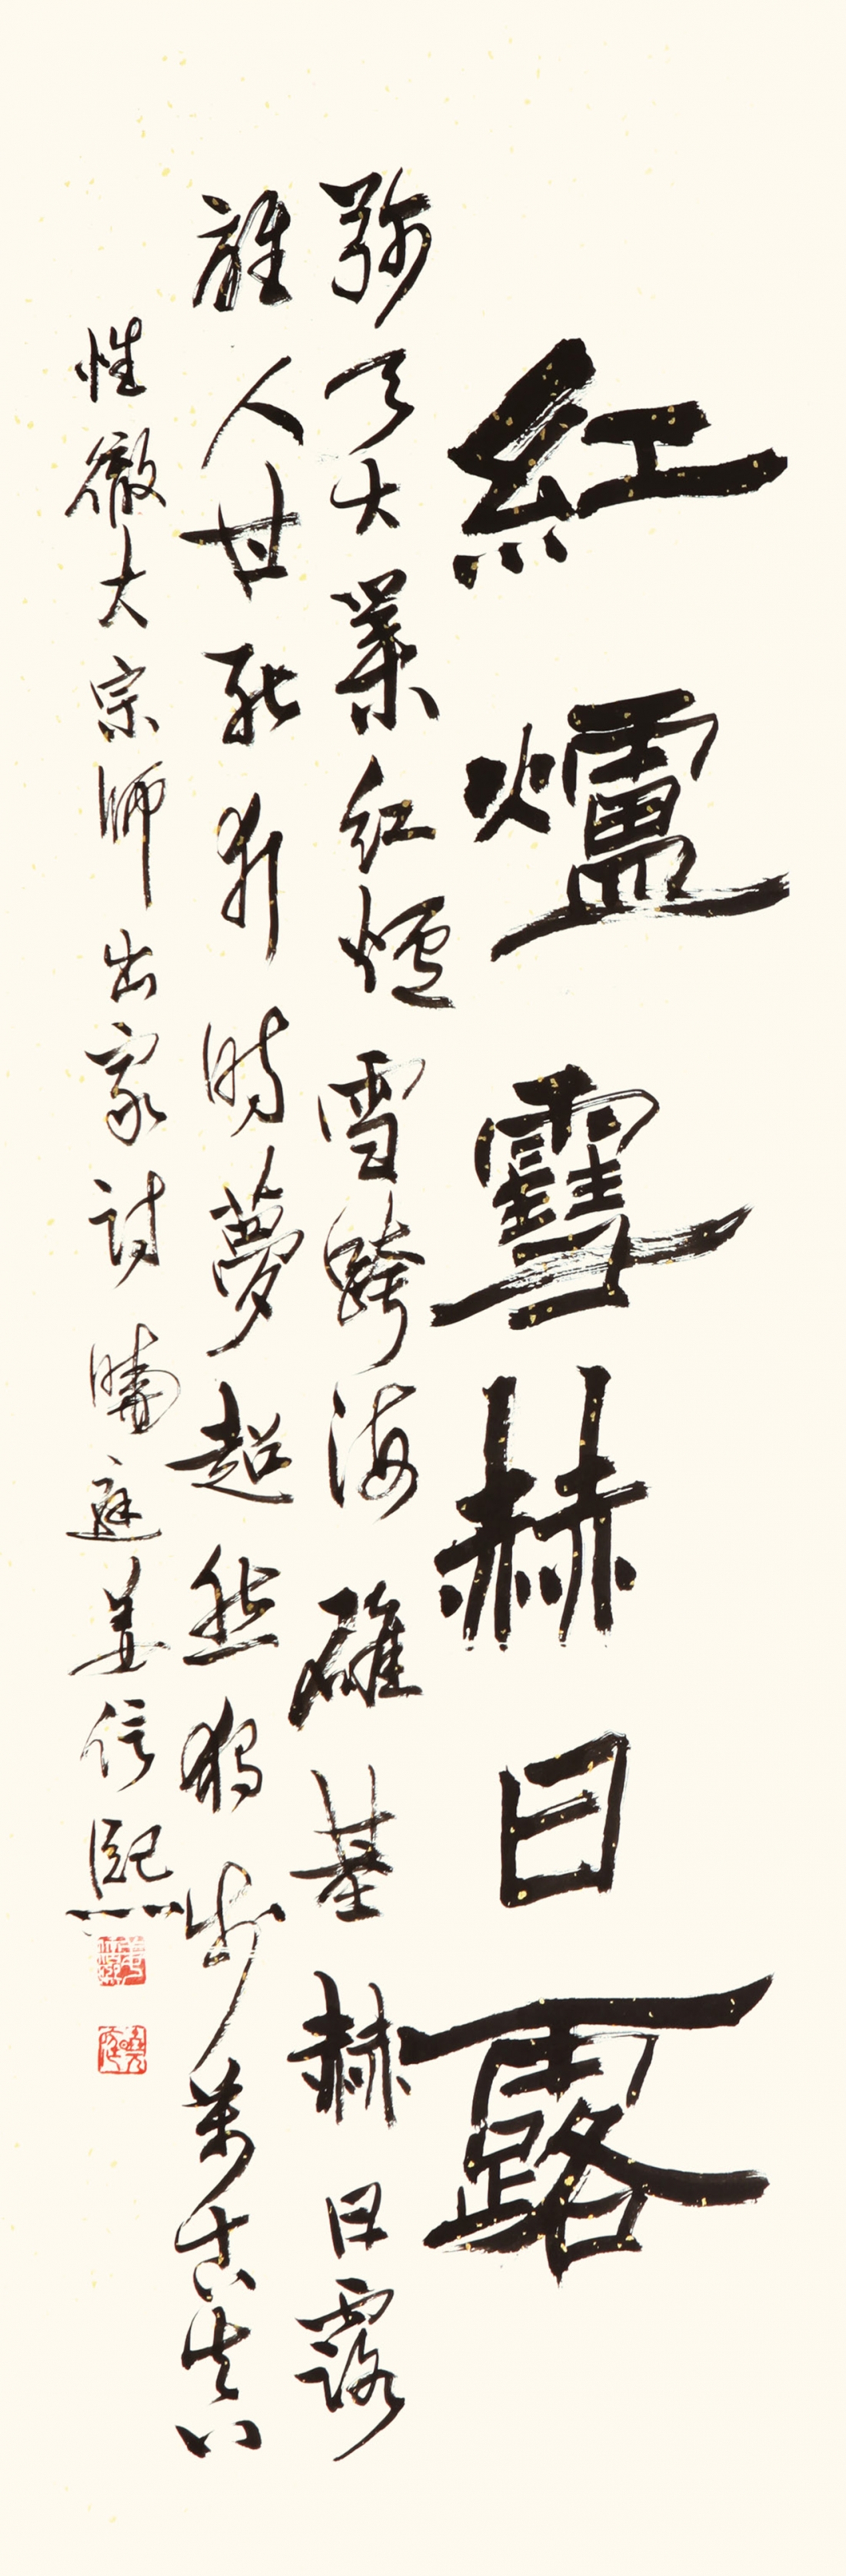 紅爐雪赫日露
弥天大業紅爐雪跨海雄基赫日露
誰人甘死片時夢超然獨步萬古真
性徹大宗師出家詩 曉庭姜信熙